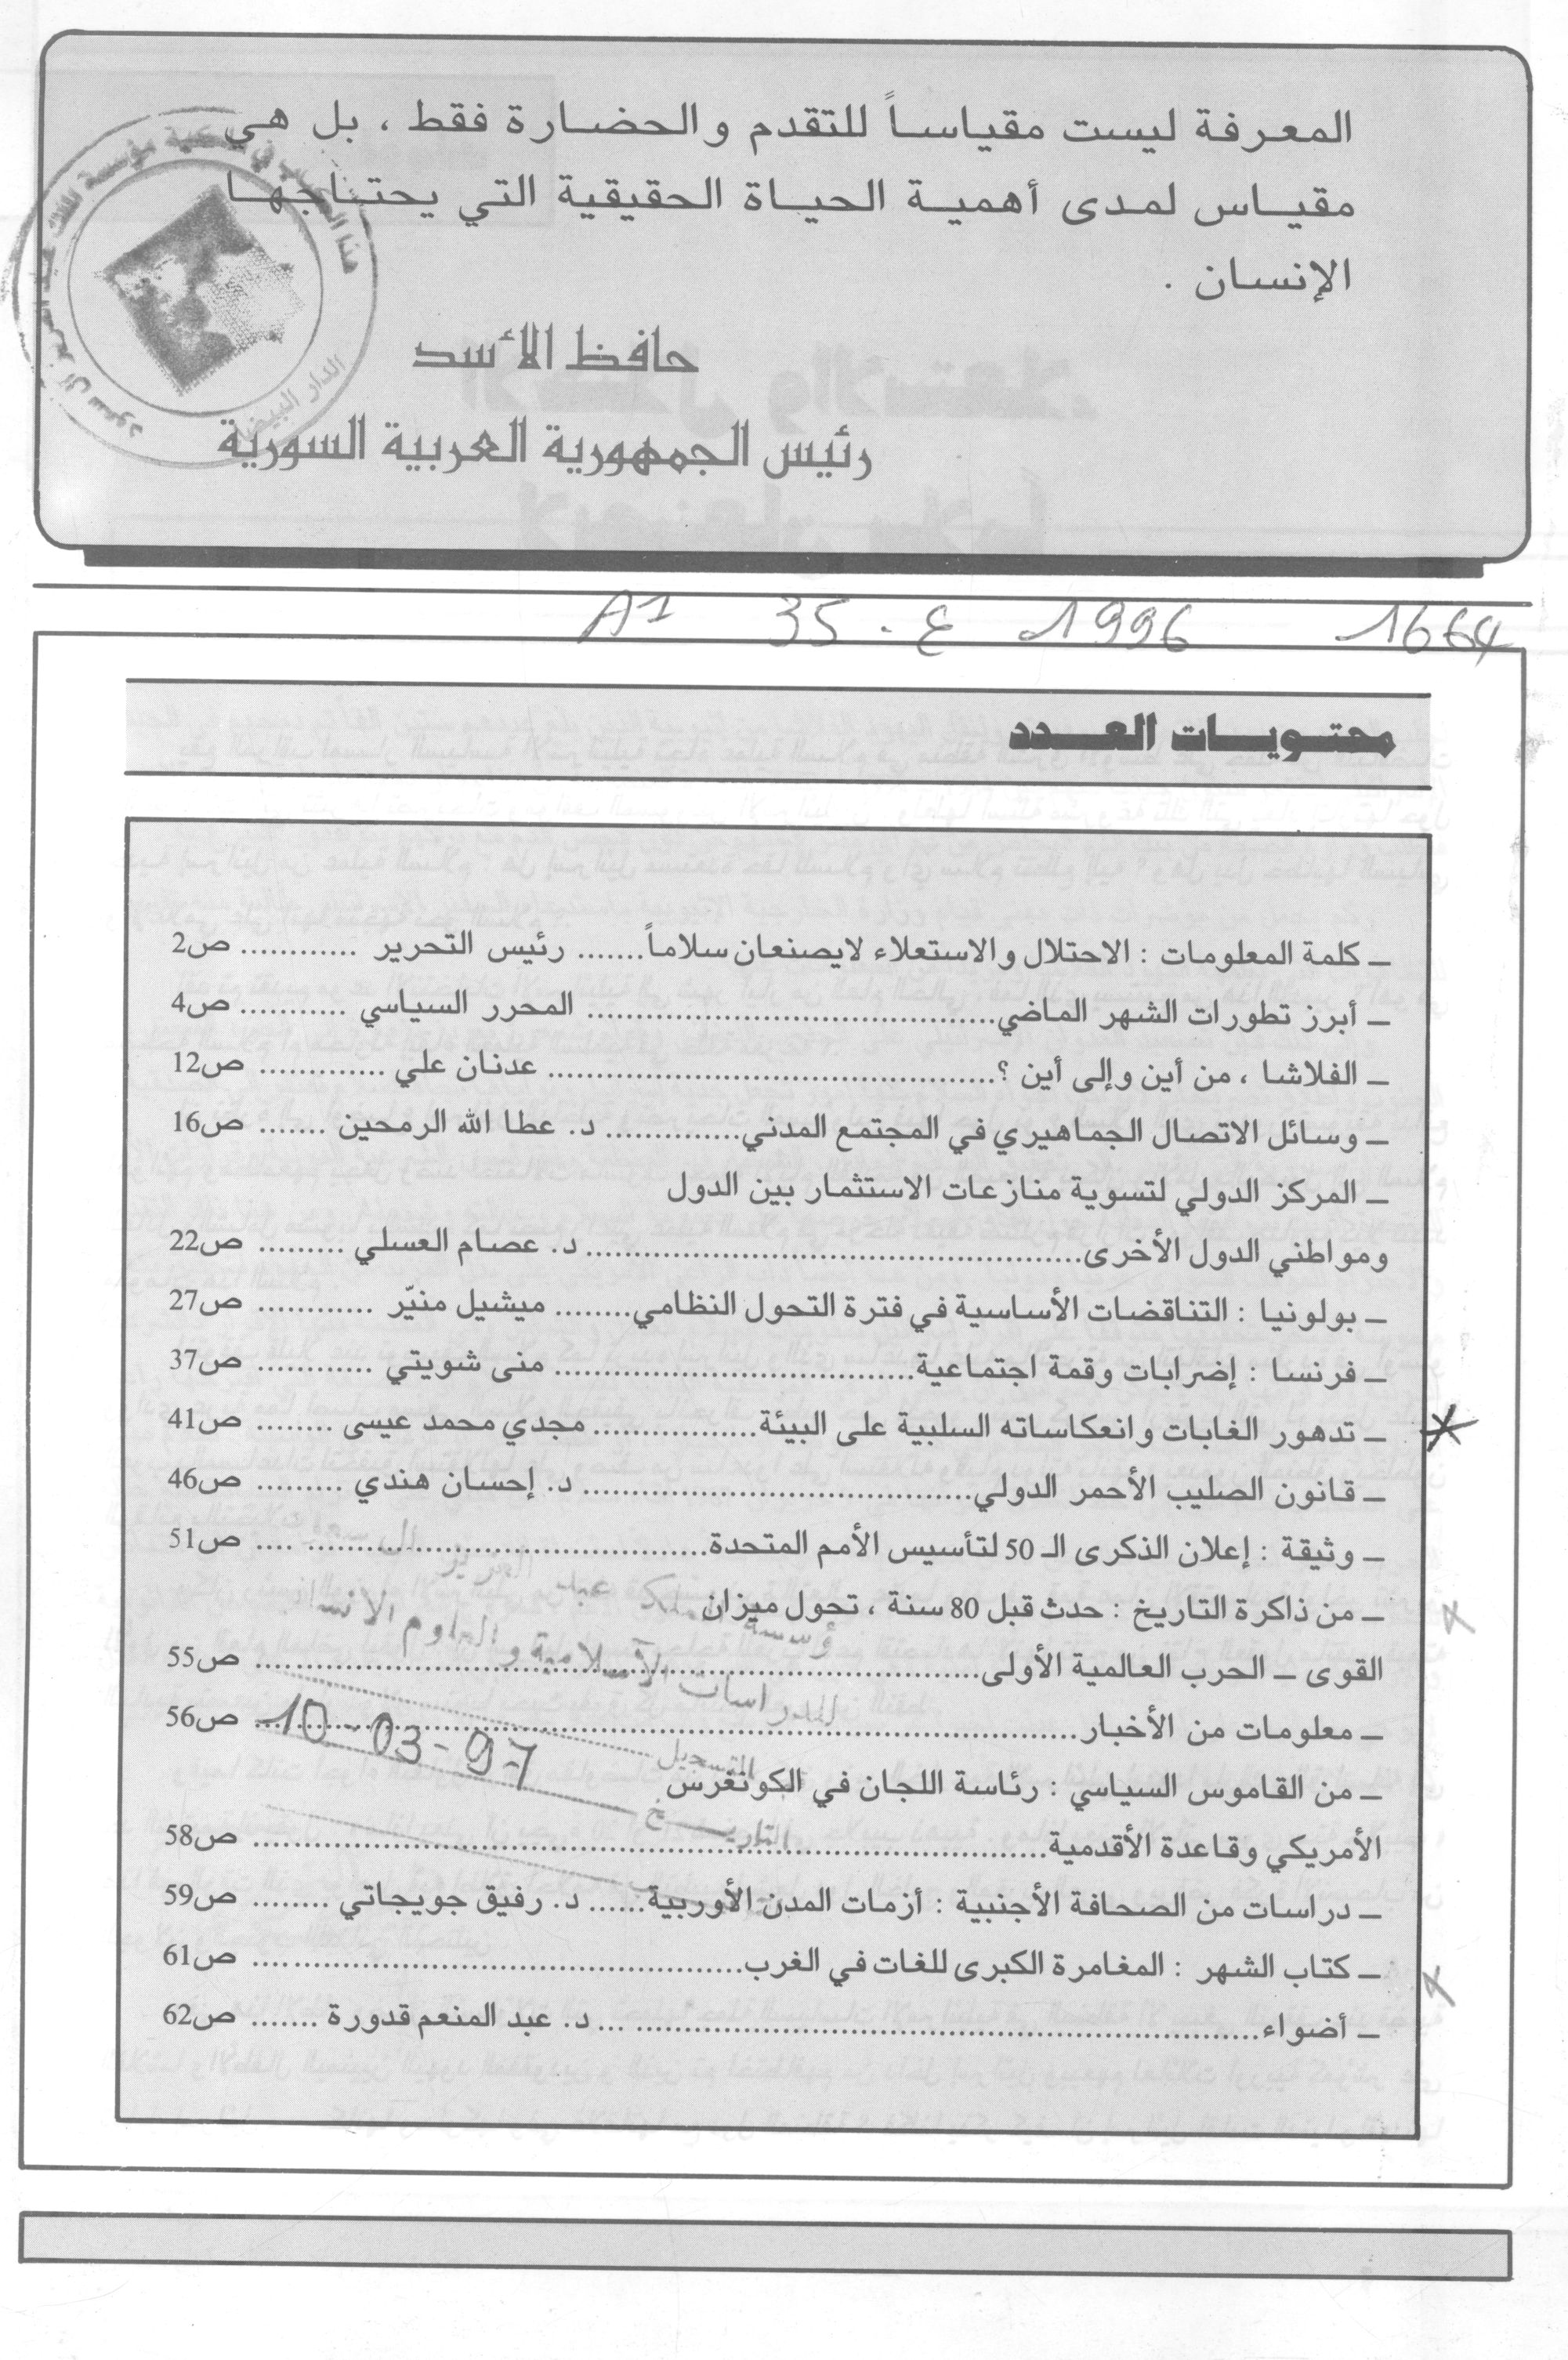 المعرفة ليست مقياساً للتقدم والحضارة فقط ، بل هي
مقياس لمدى أهمية الحياة الحقيقية التي يحتاجها
الإنسان .
حافظ الأسد
رئيس الجمهورية العربية السورية
A1 35 . ع 1996 1664
محتويات العدد
ــ كلمة المعلومات : الاحتلال والاستعلاء لايصنعان سلاماً....... رئيس التحرير ............ ص2
ــ أبرز تطورات الشهر الماضي.......................................... المحرر السياسي ........... ص4
ــ الفلاشا ، من أين وإلى أين ؟.............................................. عدنان علي ............. ص12
ــ وسائل الاتصال الجماهيري في المجتمع المدني.............. د. عطا الله الرمحين ....... ص16
ــ المركز الدولي لتسوية منازعات الاستثمار بين الدول
ومواطني الدول الأخرى................................................... د. عصام العسلي ......... ص22
ــ بولونيا : التناقضات الأساسية في فترة التحول النظامي........ ميشيل منيّر ............ ص27
ــ فرنسا : إضرابات وقمة اجتماعية..................................... منى شويتي ............ ص37
ــ تدهور الغابات وانعكاساته السلبية على البيئة................. مجدي محمد عيسى ........ ص41
ــ قانون الصليب الأحمر الدولي........................................ د. إحسان هندي ......... ص46
ــ وثيقة : إعلان الذكرى الـ 50 لتأسيس الأمم المتحدة......................................... .... ص51
ــ من ذاكرة التاريخ : حدث قبل 80 سنة ، تحول ميزان
القوى ــ الحرب العالمية الأولى........................................................................... ص55
ــ معلومات من الأخبار..................................................................................... ص56
10-03-97
ــ من القاموس السياسي : رئاسة اللجان في الكونغرس
التاريخ
الأمريكي وقاعدة الأقدمية.................................................................................. ص58
ــ دراسات من الصحافة الأجنبية : أزمات المدن الأوربية...... د. رفيق جويجاتي ........ ص59
ــ كتاب الشهر : المغامرة الكبرى للغات في الغرب................................................... ص61
ــ أضواء................................................................ ... د. عبد المنعم قدورة ....... ص62